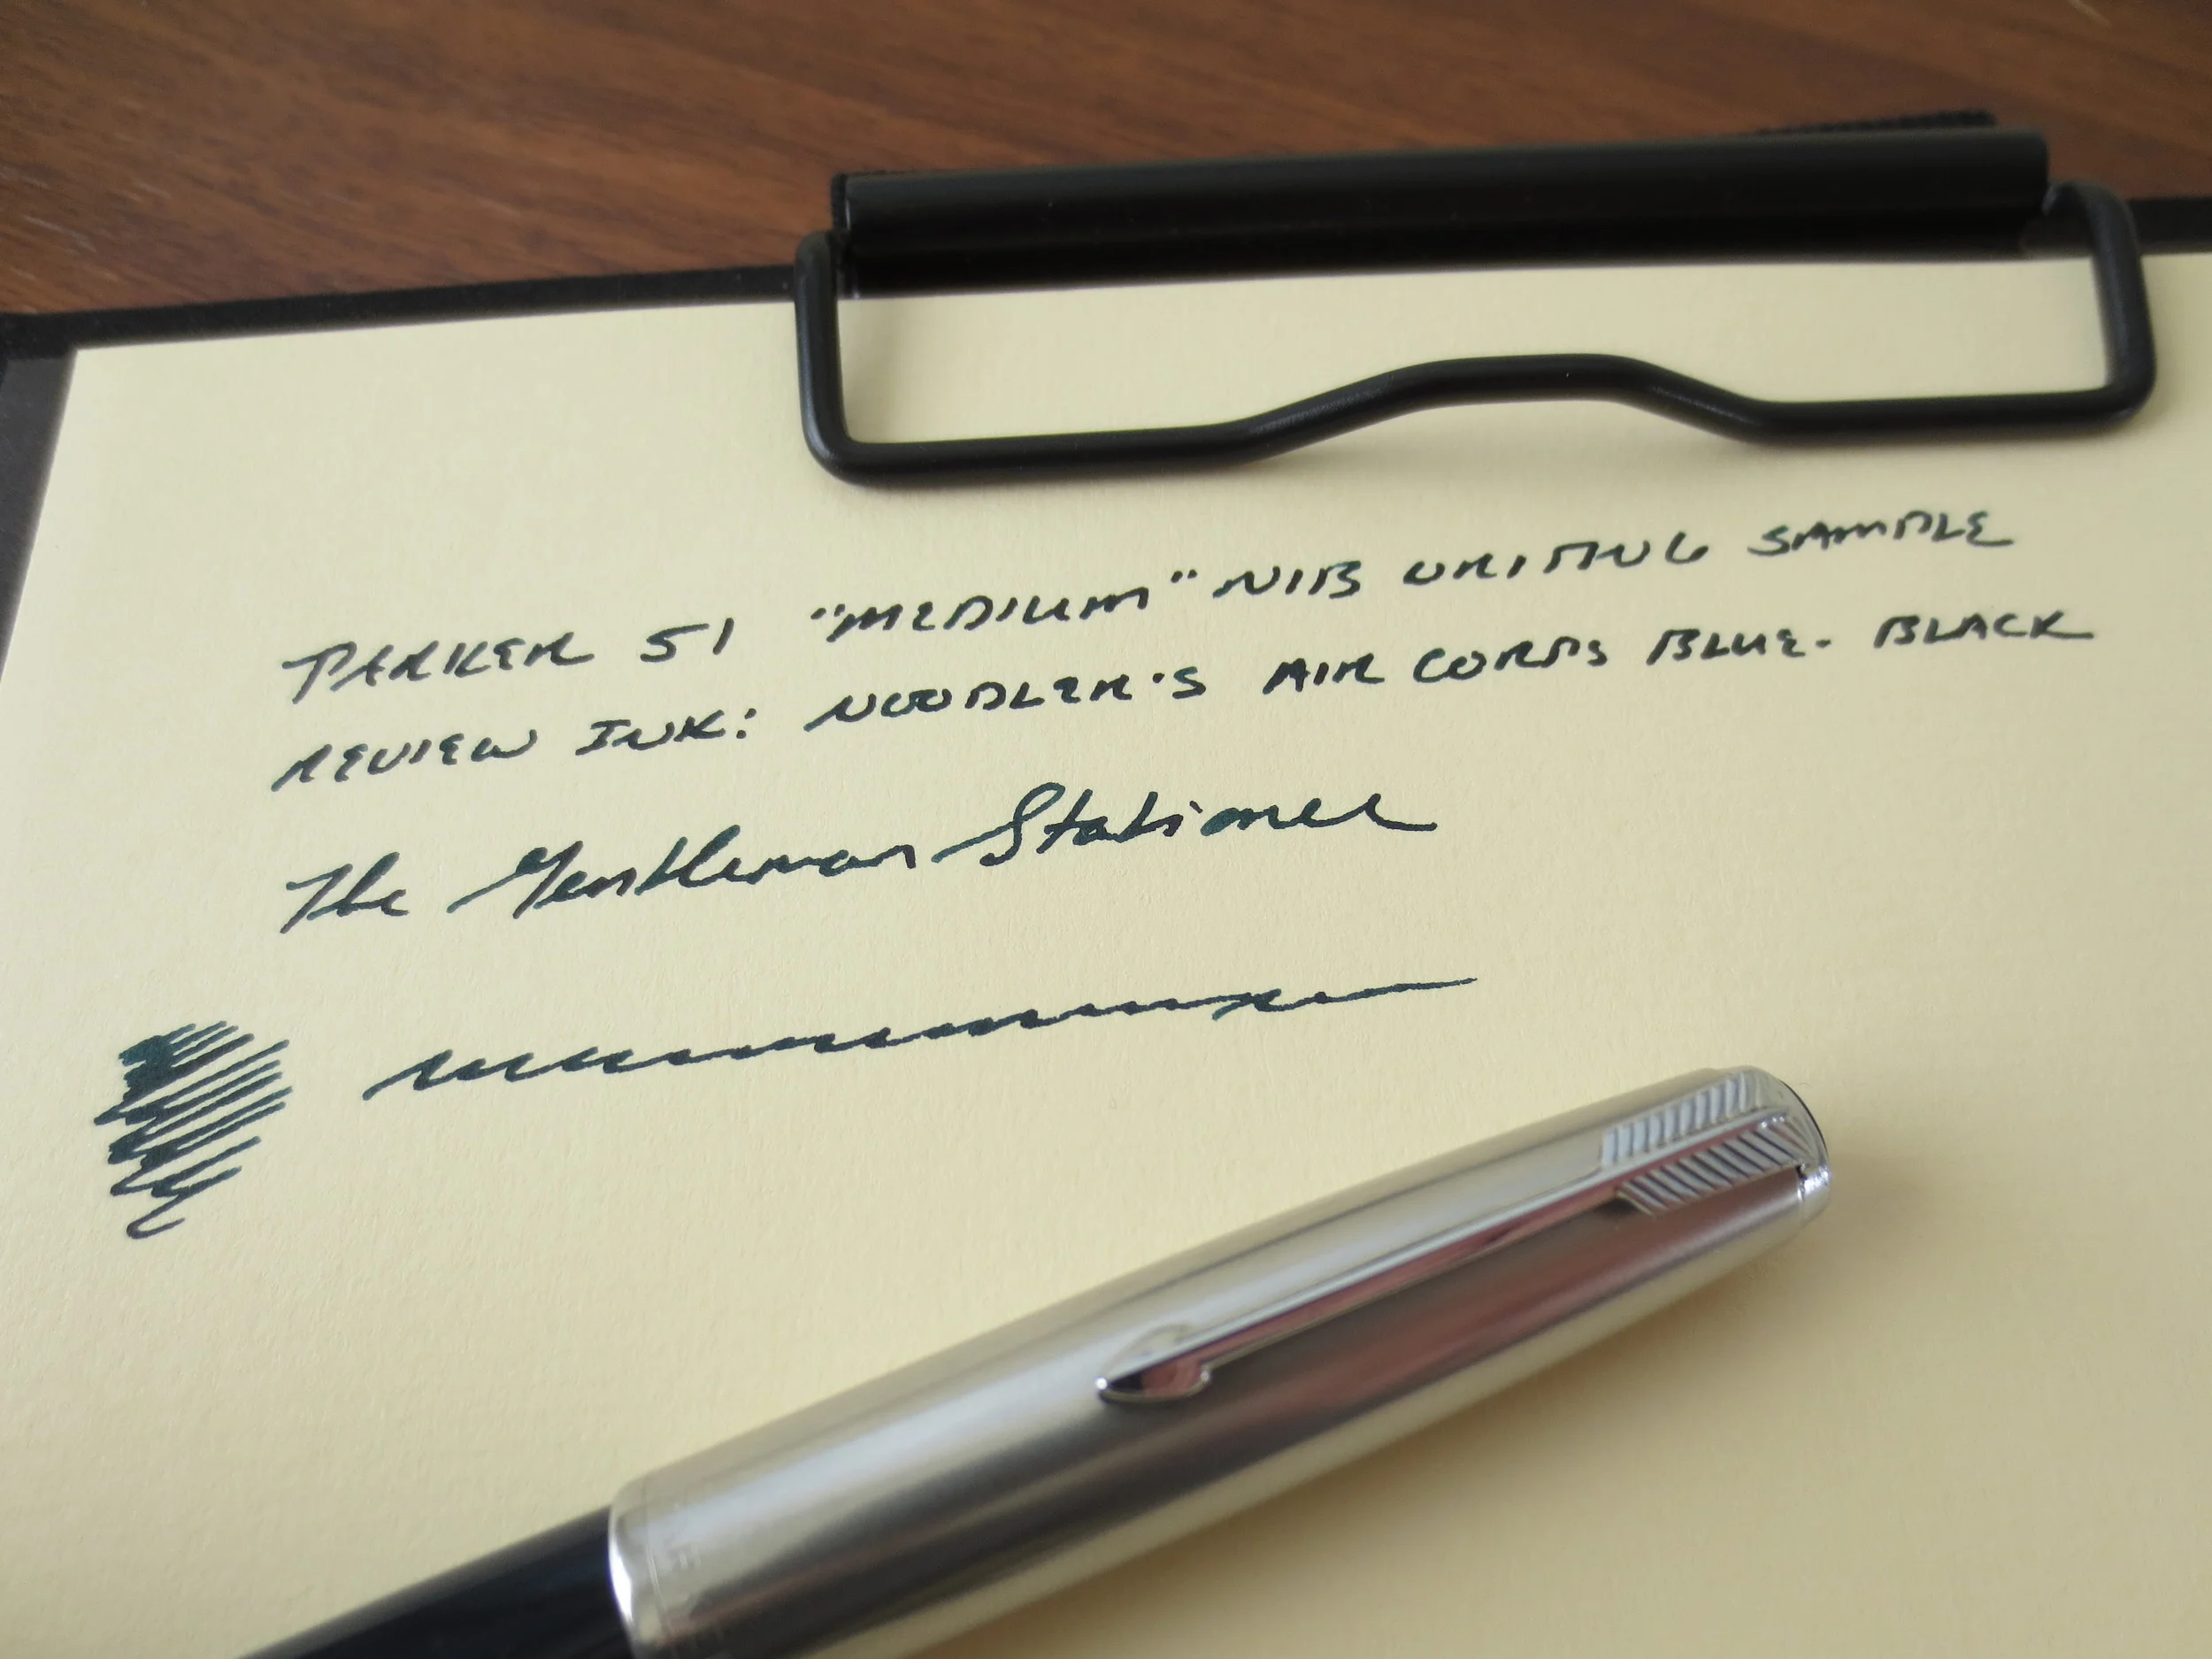 PARKER 51 "MEDIUM" NIB WRITING SAMPLE
REVIEW INK: NOODLER'S AIR CORPS BLUE-BLACK
The Gentleman Stationer